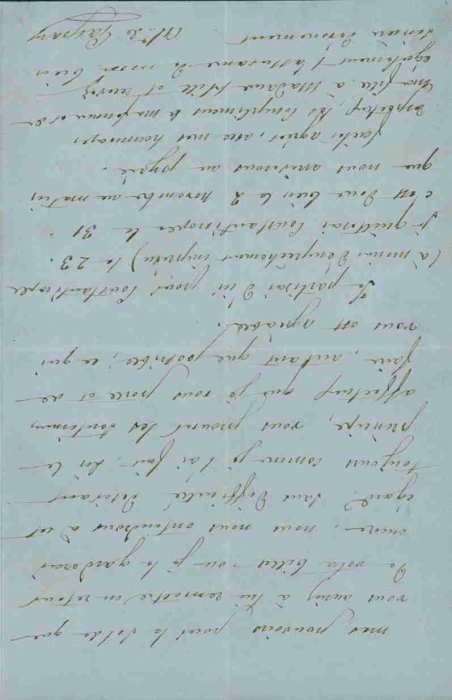 mes pouvoirs pour le solde que
vous auriez à lui remettre en retour
de votre billet ou je le garderais
encore, nous nous entendrons à cet
égard sans difficulté. Désirant
toujours comme je l'ai fait, dès le
principe, vous prouver les sentimens
affectueux que je vous porte et de
faire, autant que possible, ce qui
vous est agréable.
Je partirai d'ici pour Constantinople
(à moins d'empêchement imprévu) le 23.
Je quitterai Constantinople le 31.
c'est donc bien le 2 novembre au matin
que nous arriverons au Pyrée.
Faites agréer, avec mes hommages
respectueux, les complimens de ma femme et de
ma fille à Madame et recevez
également l'assurance de mon bien
sincère dévouement